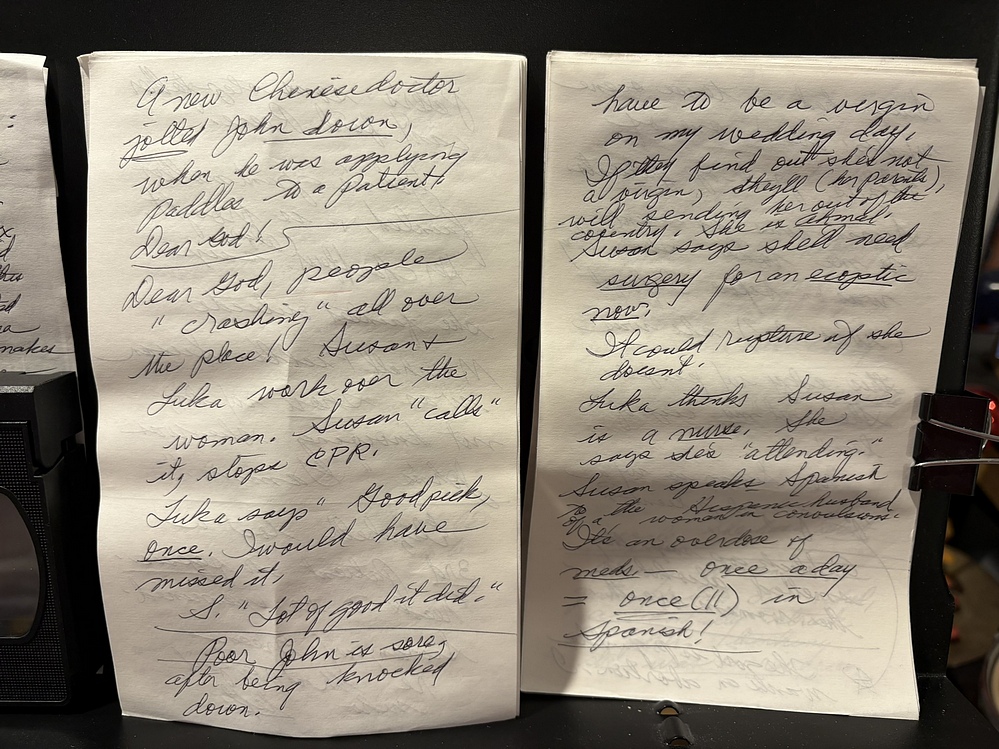 makes
A new Chinese doctor
jolted John down,
when he was applying
paddles to a patient!
Dear God!
Dear God, people
"crashing" all over
the place! Susan +
Luka work over the
woman. Susan "calls"
it, stops CPR.
Luka says "Good pick,
once. I would have
missed it.
S. "Lot of good it did."
Poor John is sore,
after being knocked
down.
have to be a virgin
on my wedding day.
If they find out she's not
a virgin, they'll (her parents),
will sending her out of the
country. She is
Susan says she'll need
surgery for an ecoptic
now.
It could rupture if she
doesn't.
Luka thinks Susan
is a nurse. She
says she's "attending."
Susan speaks Spanish
to the Hispanic husband
of a woman in convulsions.
It's an overdose of
meds — once a day
= once (11) in
Spanish!